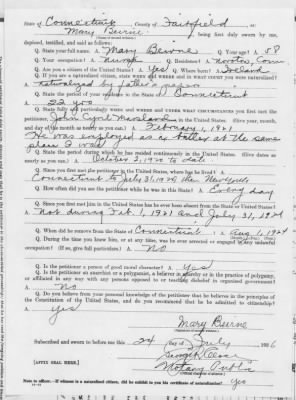 State of Connecticut County of Fairfield ss:
Mary Beirne being first duly sworn by me,
deposed, testified, and said as follows:
Q. State your full name. A. Mary Beirne Q. Your age? A. 58
Q. Your occupation? A. nurse Q. Residence? A. Noroton, Conn.
Q. Are you a citizen of the United States? A. Yes Q. Where born? A. Ireland
Q. If you are a naturalized citizen, state WHEN and WHERE and in WHAT COURT you were naturalized?
naturalized by father's papers
Q. State the period of your residence in the State of Connecticut
A. 22 yrs.
Q. State fully and particularly WHEN and WHERE and UNDER WHAT CIRCUMSTANCES you first met the
petitioner, John Cyril in the United States. (Give year, month,
and day of the month as nearly as you can.) A. February 1, 1921
He was employed as a at the same
place I was
Q. State the period during which he has resided continuously in the United States. (Give dates
nearly as you can.) A. October 2, 1920 to date
Q. Since you first met the petitioner in the United States, where has he lived? A.
Connecticut to July 31, 1924 then New York
Q. How often did you see the petitioner while he was in this State? A. Every day
Q. Since you first met him in the United States has he ever been absent from the United States?
A. Not during Feb. 1, 1921 and July 31, 1924
Q. When did he remove from the State of Connecticut A. Aug 1, 1924
Q. During the time you knew him, or at any time, was he ever arrested or engaged in any unlawful
occupation? (If so, give full particulars.) A. No
Q. Is the petitioner a person of good moral character? A. Yes
Q. Is the petitioner an anarchist or a polygamist, a believer in anarchy or in the practice of polygamy,
or affiliated in any way with any persons opposed to or teaching disbelief in organized government?
A. No
Q. Do you believe from your personal knowledge of the petitioner that he believes in the principles of
the Constitution of the United States, and do you recommend that he be admitted to citizenship?
A. yes
Mary Beirne
Subscribed and sworn to before me this 24 day of July 1926
Notary Public
[AFFIX SEAL HERE.]
Note to officer.—If witness is a naturalized citizen, did he exhibit to you his certificate of naturalization? Yes